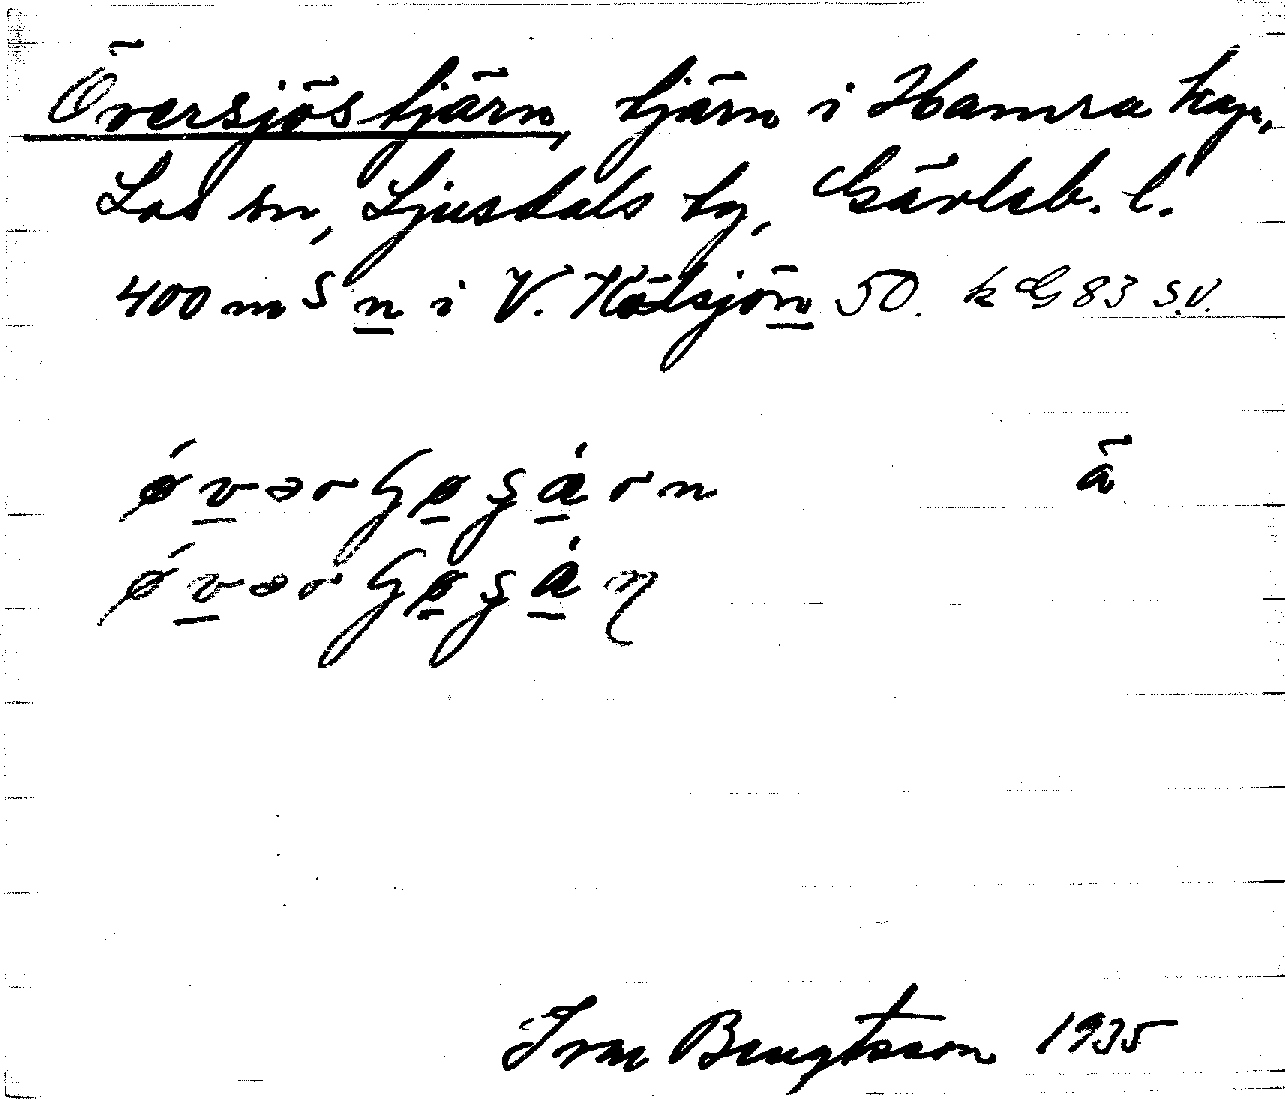 Översjöstjärn, tjärn i Hamra kap.,
Los sn, Ljusdals tg, Gävleb. l.
400 m S n i V. Kölsjön 50. k G 83 s.v.
ä
Ivar Bengtsson 1935